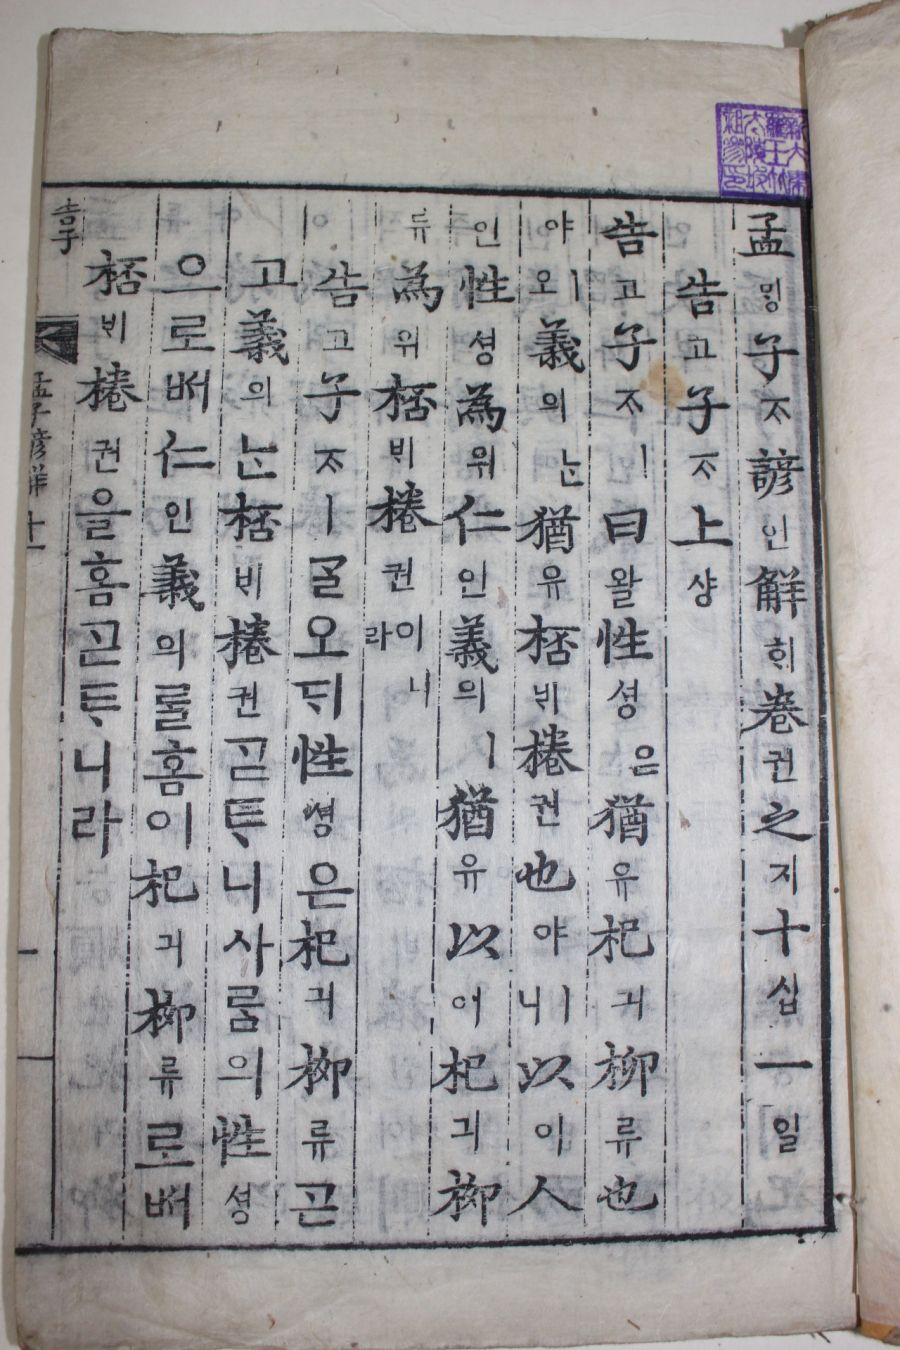 孟밍子ᄌᆞ諺언解ᄒᆡ卷권之지十십一일
告고子ᄌᆞ上샹
告고子ᄌᆞㅣ曰왈性셩은猶유杞긔柳류也
야ㅣ오義의ᄂᆞᆫ猶유桮ᄇᆡ棬권也야ㅣ니以이人
인性셩為위仁인義의ㅣ猶유以이杞긔柳
류為위桮ᄇᆡ棬권이니라
告고子ᄌᆞㅣᄀᆞᆯ오ᄃᆡ性셩은杞긔柳류ᄀᆞᆮ
고義의ᄂᆞᆫ桮ᄇᆡ棬권ᄀᆞᆮᄐᆞ니사ᄅᆞᆷ의性셩
으로ᄡᅥ仁인義의ᄅᆞᆯ홈이杞긔柳류로ᄡᅥ
桮ᄇᆡ棬권을홈ᄀᆞᆮᄐᆞ니라
告子
孟子諺解 十一